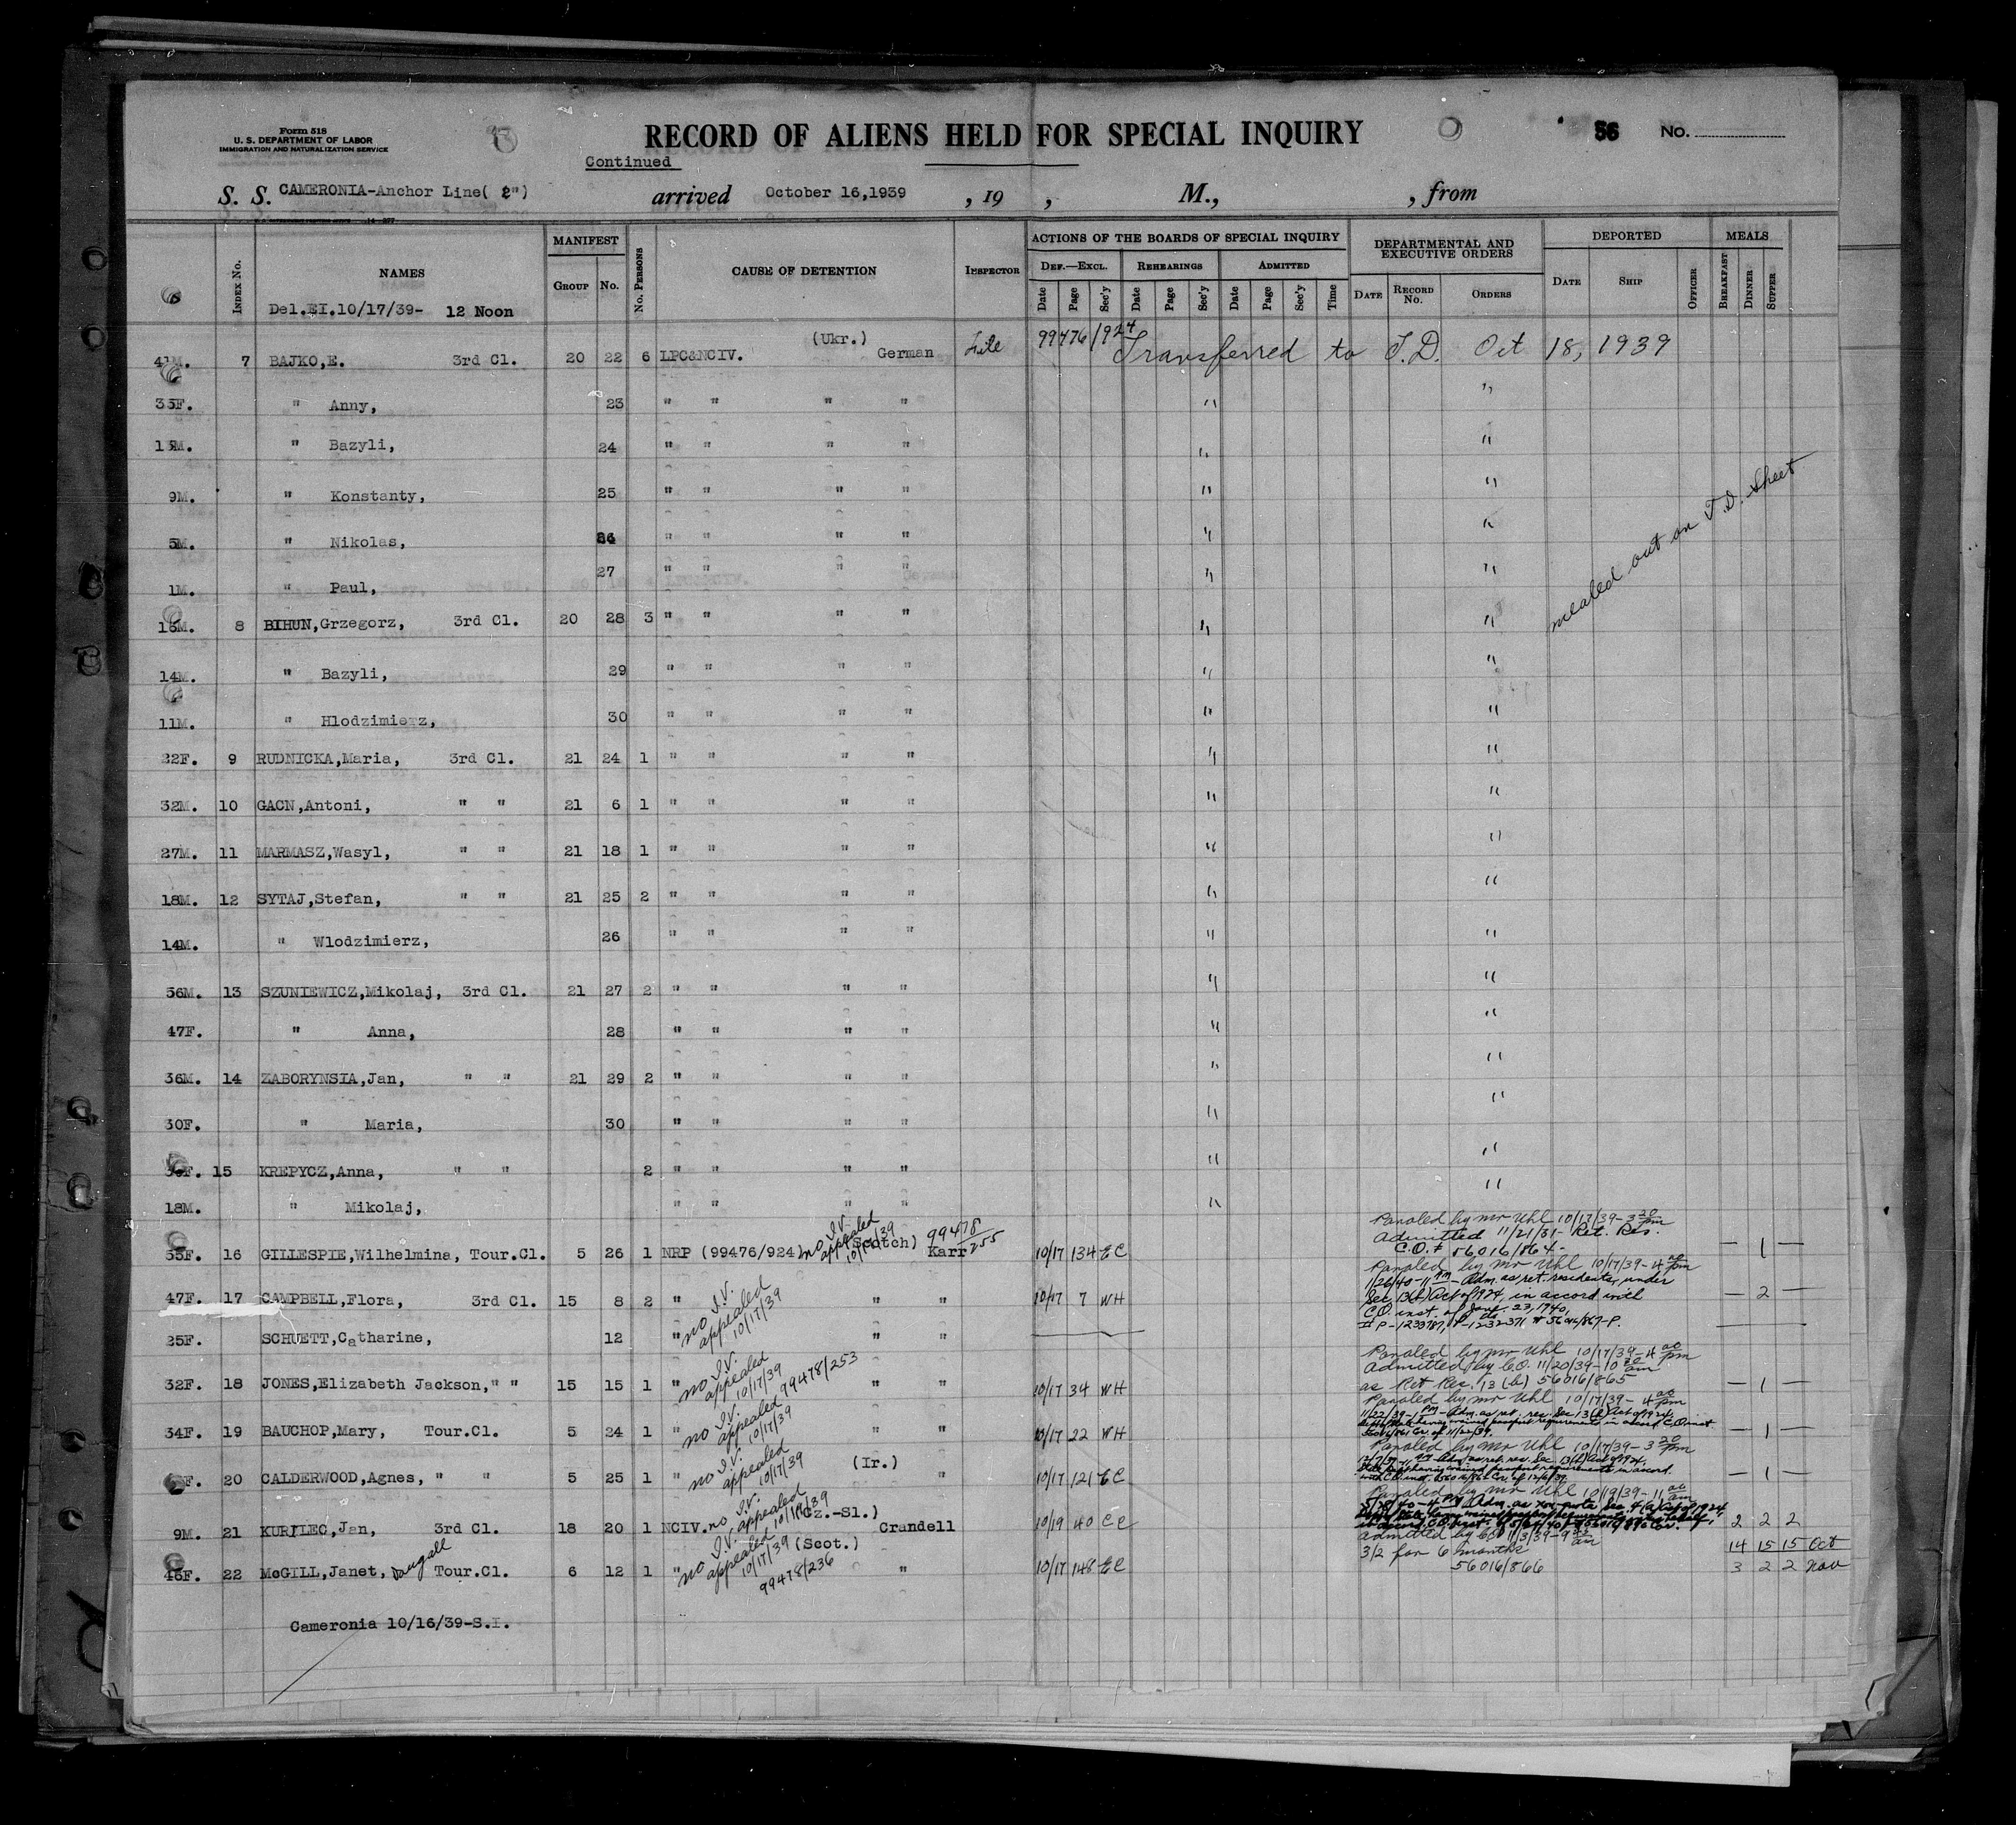 Form 518
U. S. DEPARTMENT OF LABOR
IMMIGRATION AND NATURALIZATION SERVICE
RECORD OF ALIENS HELD FOR SPECIAL INQUIRY
56 No.
Continued
S. S. CAMERONIA-Anchor Line( 2") arrived October 16,1939 , 19 , M., , from
MANIFEST ACTIONS OF THE BOARDS OF SPECIAL INQUIRY DEPARTMENTAL AND EXECUTIVE ORDERS DEPORTED MEALS
Index No. NAMES Group No. No. Persons CAUSE OF DETENTION Inspector Def.—Excl. Rehearings Admitted
Date Page Sec'y Date Page Sec'y Date Page Sec'y Time Date Record No. Orders Date Ship Officer Breakfast Dinner Supper
Del.EI.10/17/39- 12 Noon
41M. 7 BAJKO,E. 3rd Cl. 20 22 6 LPC&NCIV. (Ukr.) German 99476/924 Transferred to T.D. Oct 18, 1939
35F. " Anny, 23 " " " " " "
15M. " Bazyli, 24 " " " " " "
9M. " Konstanty, 25 " " " " " "
5M. " Nikolas, 26 " " " " " "
1M. " Paul, 27 " " " " " "
mealed out on T.D. Sheet
16M. 8 BIHUN,Grzegorz, 3rd Cl. 20 28 3 " " " " " "
14M. " Bazyli, 29 " " " " " "
11M. " Hlodzimierz, 30 " " " " " "
22F. 9 RUDNICKA,Maria, 3rd Cl. 21 24 1 " " " " " "
32M. 10 GACN,Antoni, " " 21 6 1 " " " " " "
27M. 11 MARMASZ,Wasyl, " " 21 18 1 " " " " " "
18M. 12 SYTAJ,Stefan, " " 21 25 2 " " " " " "
14M. " Wlodzimierz, 26 " " " " " "
56M. 13 SZUNIEWICZ,Mikolaj, 3rd Cl. 21 27 2 " " " " " "
47F. " Anna, 28 " " " " " "
36M. 14 ZABORYNSIA,Jan, " " 21 29 2 " " " " " "
30F. " Maria, 30 " " " " " "
F. 15 KREPYCZ,Anna, " " 2 " " " " " "
18M. " Mikolaj, " " " " " "
55F. 16 GILLESPIE,Wilhelmina, Tour.Cl. 5 26 1 NRP (99476/924) no I.V. appealed 10/17/39 (Scotch) Karr 99478/255 10/17 134 EC Paroled by Mr Uhl 10/17/39-3 20 pm — 1 —
Admitted 11/21/31- Ret. Res.
C.O.# 56016/864-
47F. 17 CAMPBELL,Flora, 3rd Cl. 15 8 2 " no I.V. appealed 10/17/39 " " 10/17 7 WH Paroled by Mr Uhl 10/17/39-4 pm — 2 —
1/26/40-11 AM- Adm. as ret. residents, under
Sec. 13(b) Act of 1924, in accord with
C.O. inst. of Jany. 23, 1940,
25F. SCHUETT,Catharine, 12 " " "
32F. 18 JONES,Elizabeth Jackson," " 15 15 1 " no I.V. appealed 10/17/39 99478/253 " " 10/17 34 WH Paroled by Mr Uhl 10/17/39-4 00 pm — 1 —
Admitted by C.O. 11/20/39-10 am
as Ret Res. 13 (b) 56016/865
34F. 19 BAUCHOP,Mary, Tour.Cl. 5 24 1 " no I.V. appealed 10/17/39 " " 10/17 22 WH Paroled by Mr Uhl 10/17/39-4 00 pm — 1 —
F. 20 CALDERWOOD,Agnes, " " 5 25 1 " no I.V. appealed 10/17/39 (Ir.) " 10/17 121 EC Paroled by Mr Uhl 10/17/39-3 20 pm — 1 —
9M. 21 KURILEC,Jan, 3rd Cl. 18 20 1 NCIV. no I.V. appealed 10/19/39 (Cz.-Sl.) Crandell 10/19 40 CC Paroled by Mr Uhl 10/19/39-11 00 am 2 2 2
46F. 22 McGILL,Janet, Dougall Tour.Cl. 6 12 1 " no I.V. appealed 10/17/39 (Scot.) 99478/236 " 10/17 148 EC admitted by CO 11/3/39-9 am 14 15 15 Oct
3/2 for 6 months
56016/866 3 2 2 Nov
Cameronia 10/16/39-S.I.